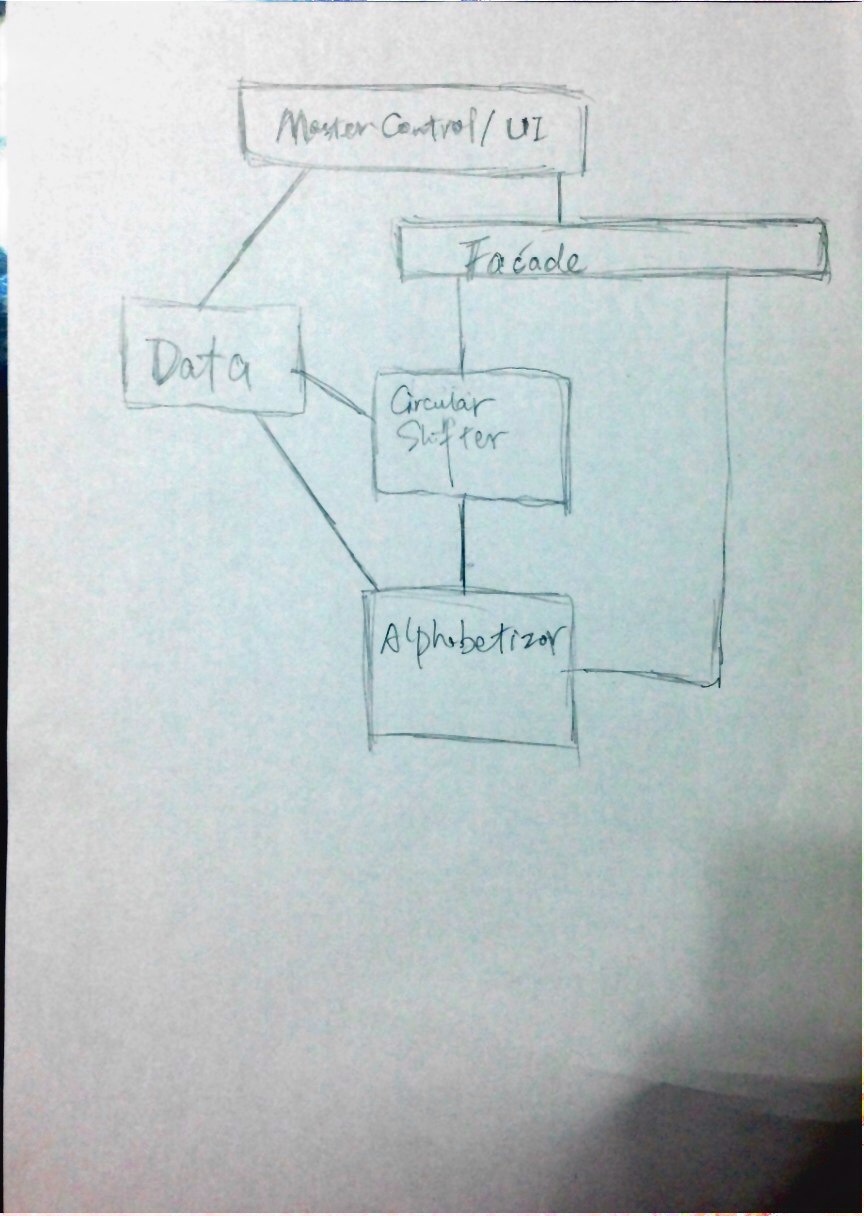 Master Control / UI
Facade
Data
Circular
Shifter
Alphabetizor